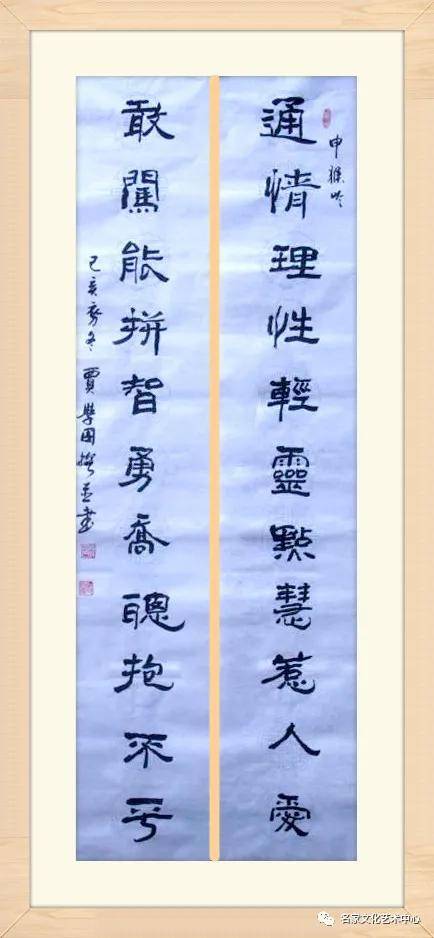 申猴吟
通情理性輕靈黠慧惹人愛
敢闖能拼智勇喬聰抱不平
己亥冬 賈學國撰並書
名家文化艺术中心